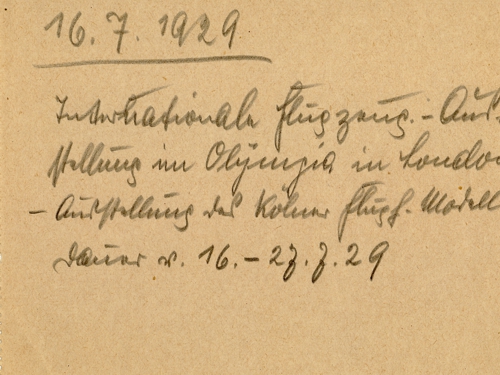 16.7.1929
Internationale Flugzeug.-Aus-
stellung im Olympia in London
- Ausstellung des Kölner Flugh. Modell
Dauer v. 16.-27.7.29